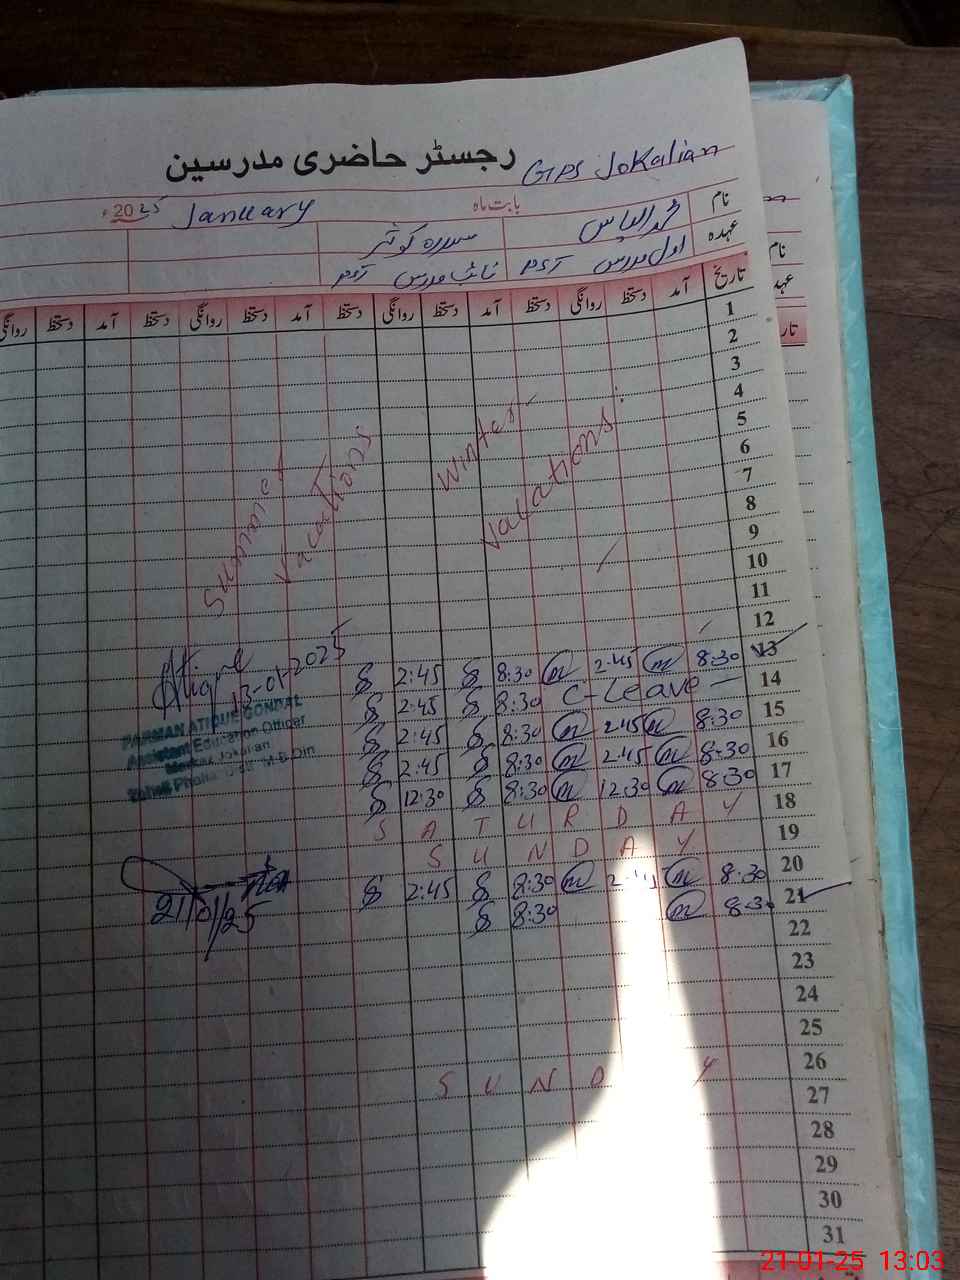 رجسٹر حاضری مدرسین GPS Jokalian
نام بابت ماہ January 2025ء
محمد الیاس سدرہ کوثر
عہدہ اول مدرس PST نائب مدرس PST
تاریخ آمد دستخط روانگی دستخط آمد دستخط روانگی دستخط آمد دستخط روانگی دستخط آمد دستخط روانگی
نام
عہد
تار
1
2
3
4
5
6
7
8
9
10
11
12
Winter
Vacations
Summer
Vacations
13 8:30 m 2:45 m 8:30 2:45
14 C-Leave 8:30 2:45
15 8:30 m 2:45 m 8:30 2:45
16 8:30 m 2:45 m 8:30 2:45
17 8:30 m 12:30 m 8:30 12:30
18 SATURDAY
19 SUNDAY
20 8:30 m 2:45 m 8:30 2:45
21 8:30 m 8:30
22
23
24
25
26 SUNDY
27
28
29
30
31
Atique
13-01-2025
FARMAN ATIQUE GONDAL
Assistant Education Officer
Markaz Jokalian
M.B.Din
21/01/25
21-01-25 13:03